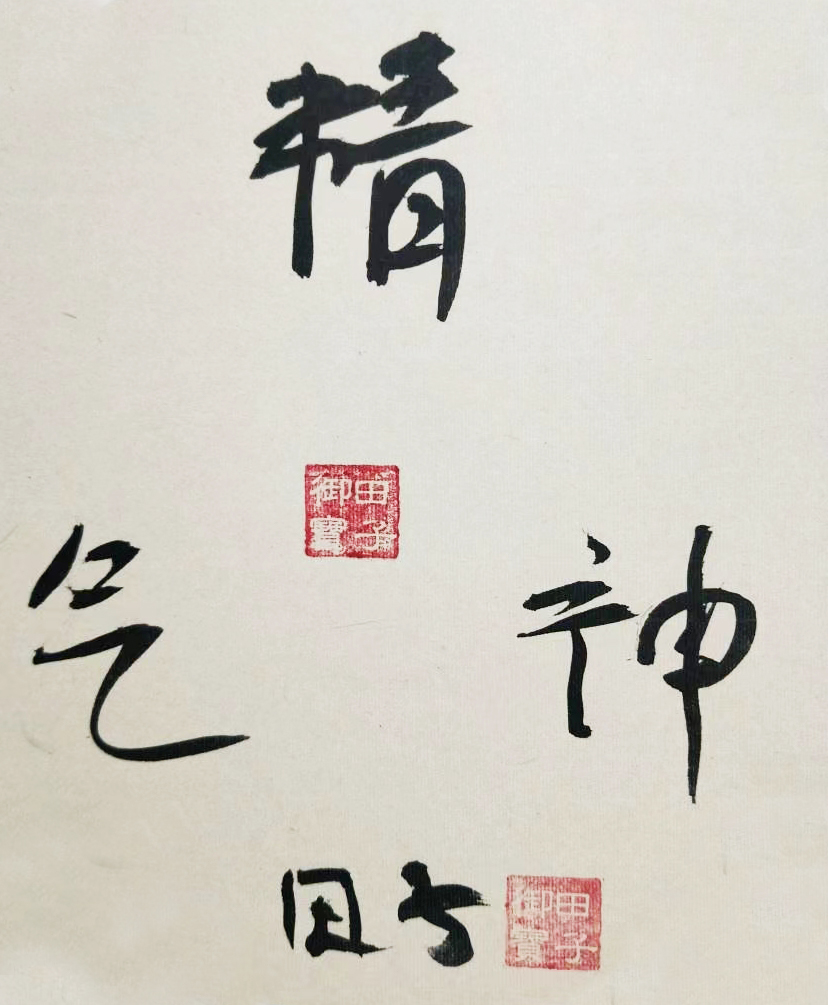 精
田子御寶
气 神
田子 田子御寶